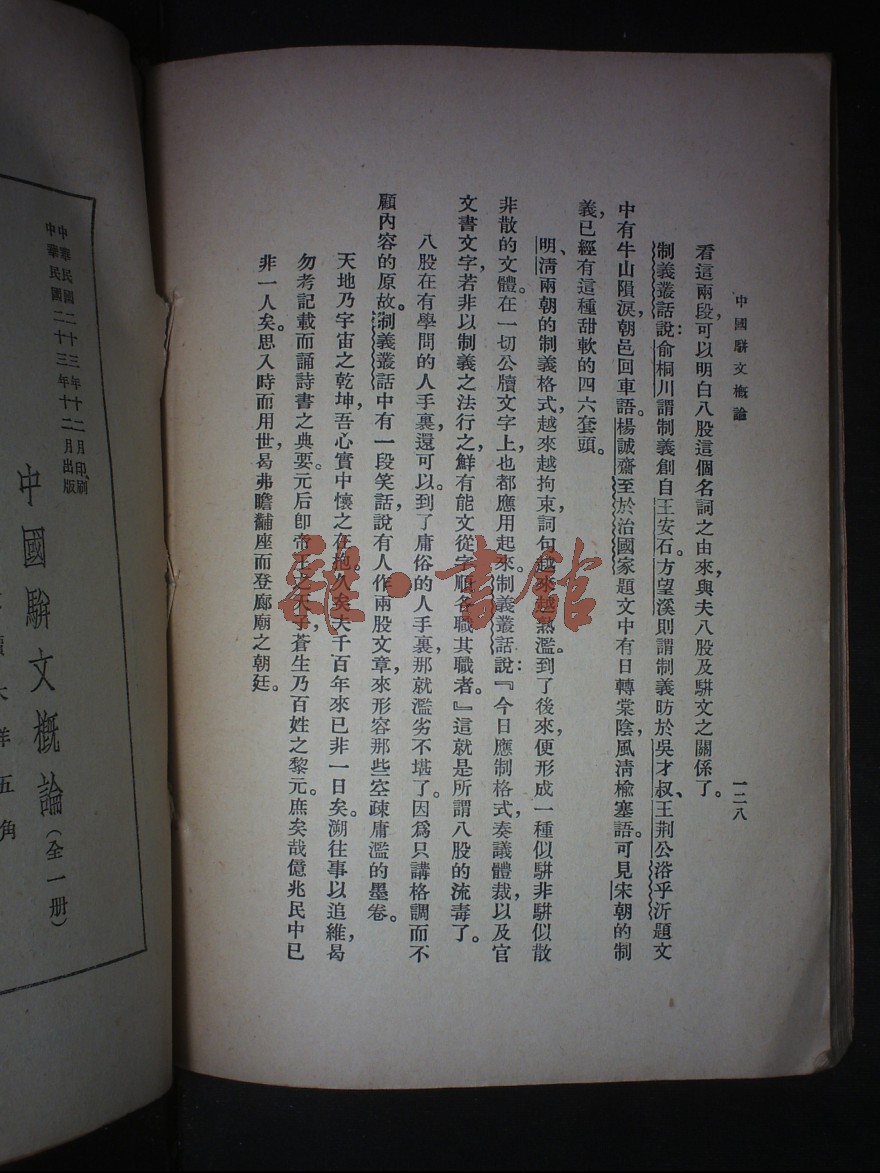 中國駢文概論
一二八
看這兩段，可以明白八股這個名詞之由來，與夫八股及駢文之關係了。
制義叢話說：俞桐川謂制義創自王安石。方望溪則謂制義昉於吳才叔、王荊公浴乎沂題文
中有牛山隕淚，朝邑回車語。楊誠齋至於治國家題文中有日轉棠陰，風清楡塞語。可見宋朝的制
義，已經有這種甜軟的四六套頭。
明、淸兩朝的制義格式，越來越拘束，詞句越來越熟濫。到了後來，便形成一種似駢非駢似散
非散的文體。在一切公牘文字上，也都應用起來。制義叢話說：『今日應制格式，奏議體裁，以及官
文書文字，若非以制義之法行之，鮮有能文從字順，各職其職者。』這就是所謂八股的流毒了。
八股在有學問的人手裏，還可以。到了庸俗的人手裏，那就濫劣不堪了。因爲只講格調而不
顧內容的原故。制義叢話中有一段笑話，說有人作兩股文章，來形容那些空疎庸濫的墨卷。
天地乃宇宙之乾坤，吾心實中懷之在抱。久矣夫千百年來已非一日矣。溯往事以追維，曷
勿考記載而誦詩書之典要。元后卽帝王之天子，蒼生乃百姓之黎元。庶矣哉億兆民中已
非一人矣。思入時而用世，曷弗瞻黼座而登廊廟之朝廷。
中華民國二十三年十二月印刷
中華民國二十三年十二月出版
中國駢文概論（全一册）
大洋五角
雜·書館